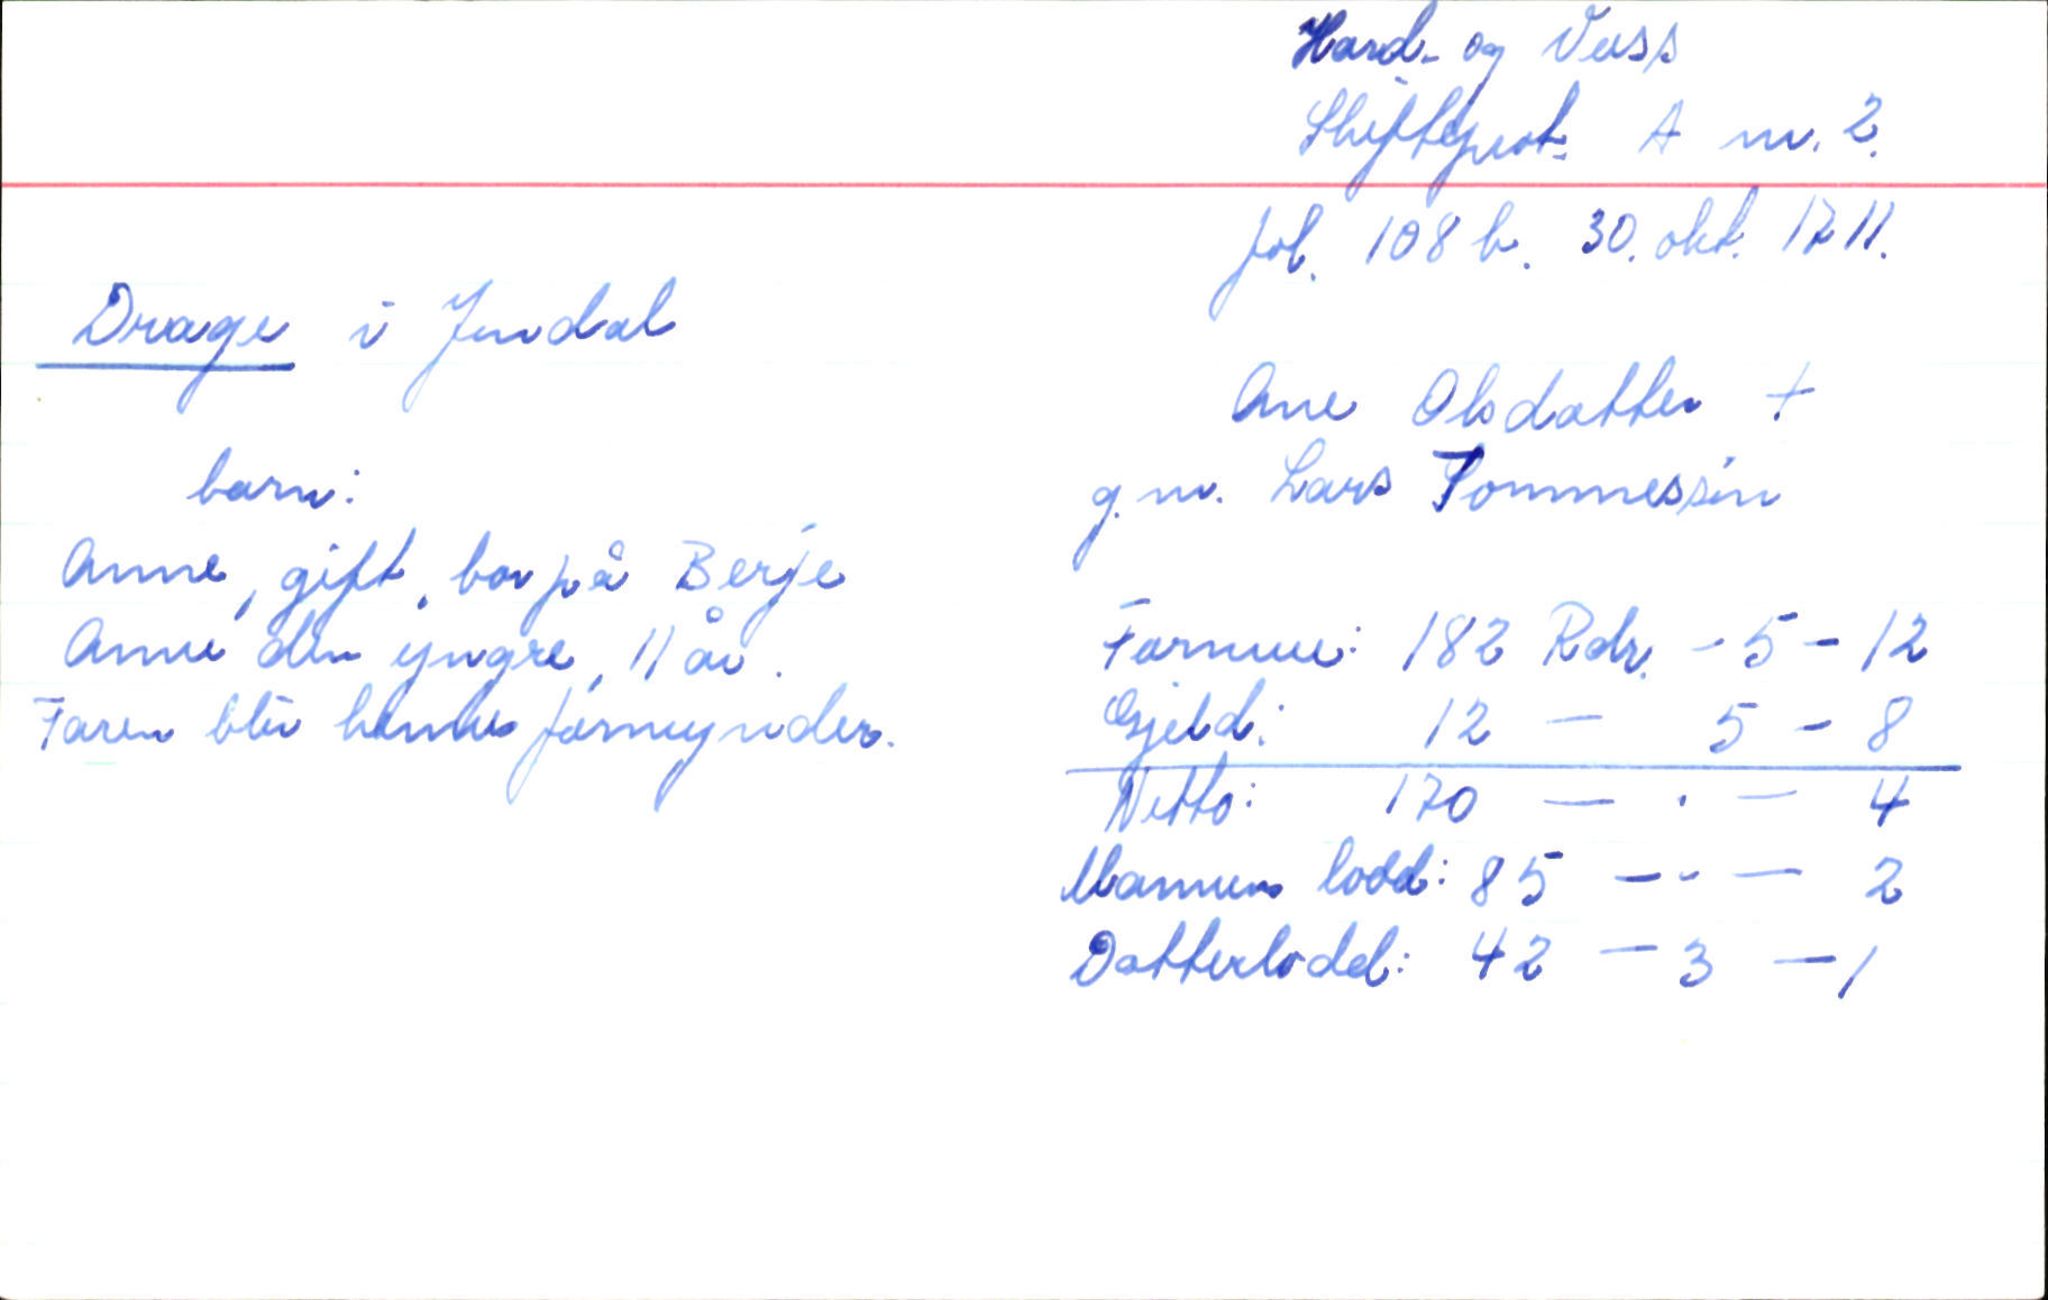 Hard. og Voss
Skifteprot. A nr. 2.
fol. 108 b. 30. okt. 1711.
Drage i Jondal
Ane Olsdatter +
g.m. Lars Tommessøn
barn:
Anne, gift, bor på Berje
Anne den yngre, 11 år.
Faren blir hennes formynder.
Formue: 182 Rdr. - 5 - 12
Gjeld: 12 — 5 - 8
Netto: 170 — . — 4
Mannens lodd: 85 — - — 2
Datterlodd: 42 — 3 — 1